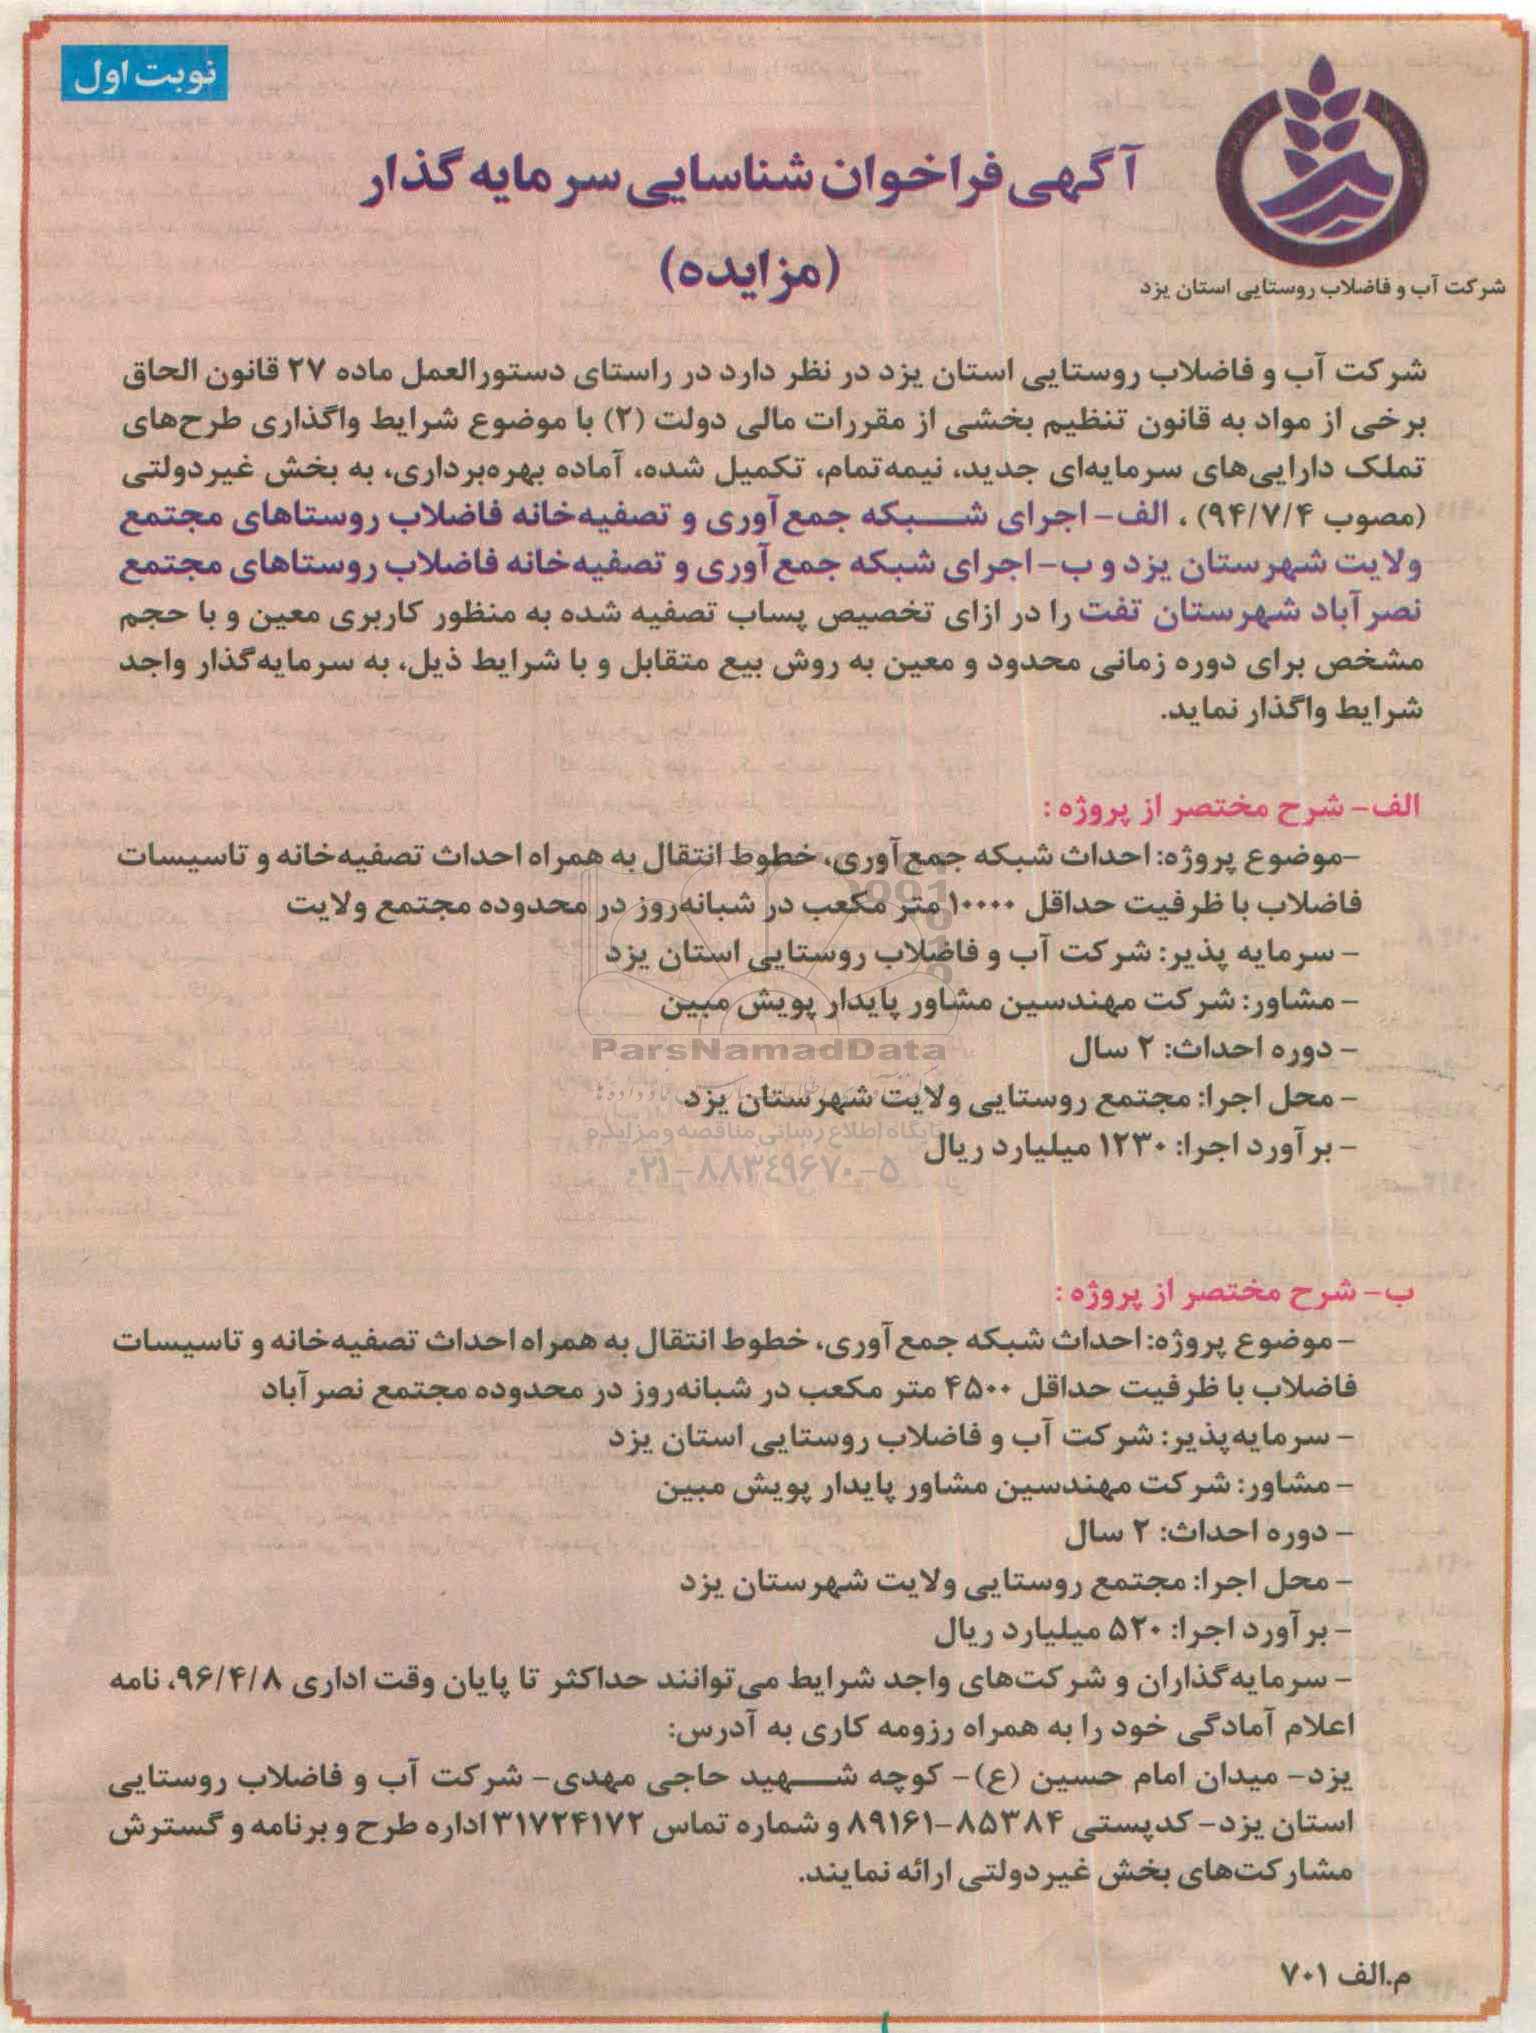 نوبت اول
آگهی فراخوان شناسایی سرمایه گذار
(مزایده)
شرکت آب و فاضلاب روستایی استان یزد
شرکت آب و فاضلاب روستایی استان یزد در نظر دارد در راستای دستورالعمل ماده ۲۷ قانون الحاق
برخی از مواد به قانون تنظیم بخشی از مقررات مالی دولت (۲) با موضوع شرایط واگذاری طرح‌های
تملک دارایی‌های سرمایه‌ای جدید، نیمه‌تمام، تکمیل شده، آماده بهره‌برداری، به بخش غیردولتی
(مصوب ۹۴/۷/۴) ، الف- اجرای شبکه جمع‌آوری و تصفیه‌خانه فاضلاب روستاهای مجتمع
ولایت شهرستان یزد و ب- اجرای شبکه جمع‌آوری و تصفیه‌خانه فاضلاب روستاهای مجتمع
نصرآباد شهرستان تفت را در ازای تخصیص پساب تصفیه شده به منظور کاربری معین و با حجم
مشخص برای دوره زمانی محدود و معین به روش بیع متقابل و با شرایط ذیل، به سرمایه‌گذار واجد
شرایط واگذار نماید.
الف- شرح مختصر از پروژه :
-موضوع پروژه: احداث شبکه جمع‌آوری، خطوط انتقال به همراه احداث تصفیه‌خانه و تاسیسات
فاضلاب با ظرفیت حداقل ۱۰۰۰۰ متر مکعب در شبانه‌روز در محدوده مجتمع ولایت
- سرمایه پذیر: شرکت آب و فاضلاب روستایی استان یزد
- مشاور: شرکت مهندسین مشاور پایدار پویش مبین
- دوره احداث: ۲ سال
ParsNamadData
- محل اجرا: مجتمع روستایی ولایت شهرستان یزد
پایگاه اطلاع رسانی مناقصه و مزایده
- برآورد اجرا: ۱۲۳۰ میلیارد ریال
۰۲۱-۸۸۳۴۹۶۷۰-۵
ب- شرح مختصر از پروژه :
- موضوع پروژه: احداث شبکه جمع‌آوری، خطوط انتقال به همراه احداث تصفیه‌خانه و تاسیسات
فاضلاب با ظرفیت حداقل ۴۵۰۰ متر مکعب در شبانه‌روز در محدوده مجتمع نصرآباد
- سرمایه‌پذیر: شرکت آب و فاضلاب روستایی استان یزد
- مشاور: شرکت مهندسین مشاور پایدار پویش مبین
- دوره احداث: ۲ سال
- محل اجرا: مجتمع روستایی ولایت شهرستان یزد
- برآورد اجرا: ۵۲۰ میلیارد ریال
- سرمایه‌گذاران و شرکت‌های واجد شرایط می‌توانند حداکثر تا پایان وقت اداری ۹۶/۴/۸، نامه
اعلام آمادگی خود را به همراه رزومه کاری به آدرس:
یزد- میدان امام حسین (ع)- کوچه شهید حاجی مهدی- شرکت آب و فاضلاب روستایی
استان یزد- کدپستی ۸۵۳۸۴-۸۹۱۶۱ و شماره تماس ۳۱۷۲۴۱۷۲ اداره طرح و برنامه و گسترش
مشارکت‌های بخش غیردولتی ارائه نمایند.
م.الف ۷۰۱